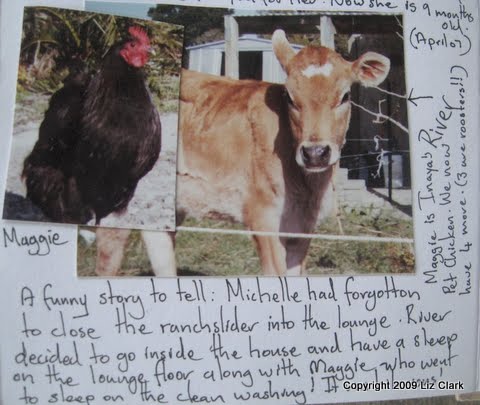 Now she is 9 months
old.
(April 09)
River
Maggie
Maggie is Inayah
Pet chicken. We now
have 4 more. (3 are roosters!!)
A funny story to tell: Michelle had forgotton
to close the ranchslider into the lounge. River
decided to go inside the house and have a sleep
on the lounge floor along with Maggie, who went
to sleep on the clean washing! It
Copyright 2009 Liz Clark